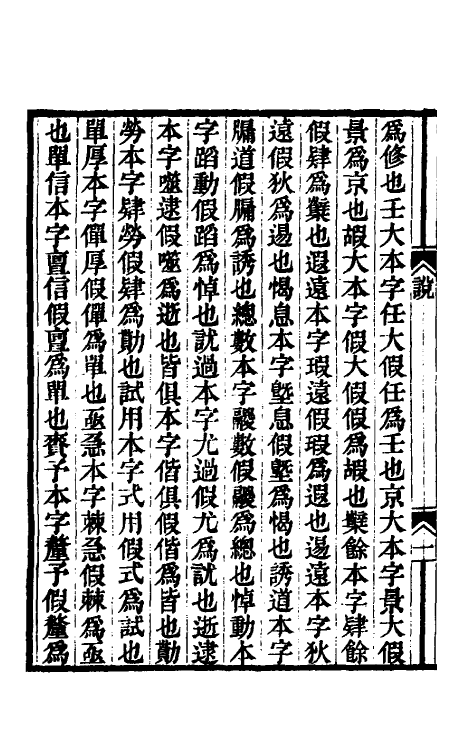 為修也壬大本字任大假任為壬也京大本字景大假
景為京也嘏大本字假大假假為嘏也㶽餘本字肄餘
假肄為㶽也遐遠本字瑕遠假瑕為遐也逷遠本字狄
遠假狄為逷也愒息本字塈息假塈為愒也誘道本字
牖道假牖為誘也總數本字鬷數假鬷為總也悼動本
字蹈動假蹈為悼也訧過本字尤過假尤為訧也逝逮
本字噬逮假噬為逝也皆俱本字偕俱假偕為皆也勩
勞本字肄勞假肄為勩也試用本字式用假式為試也
單厚本字僤厚假僤為單也亟急本字棘急假棘為亟
也單信本字亶信假亶為單也賚予本字釐予假釐為
說
一